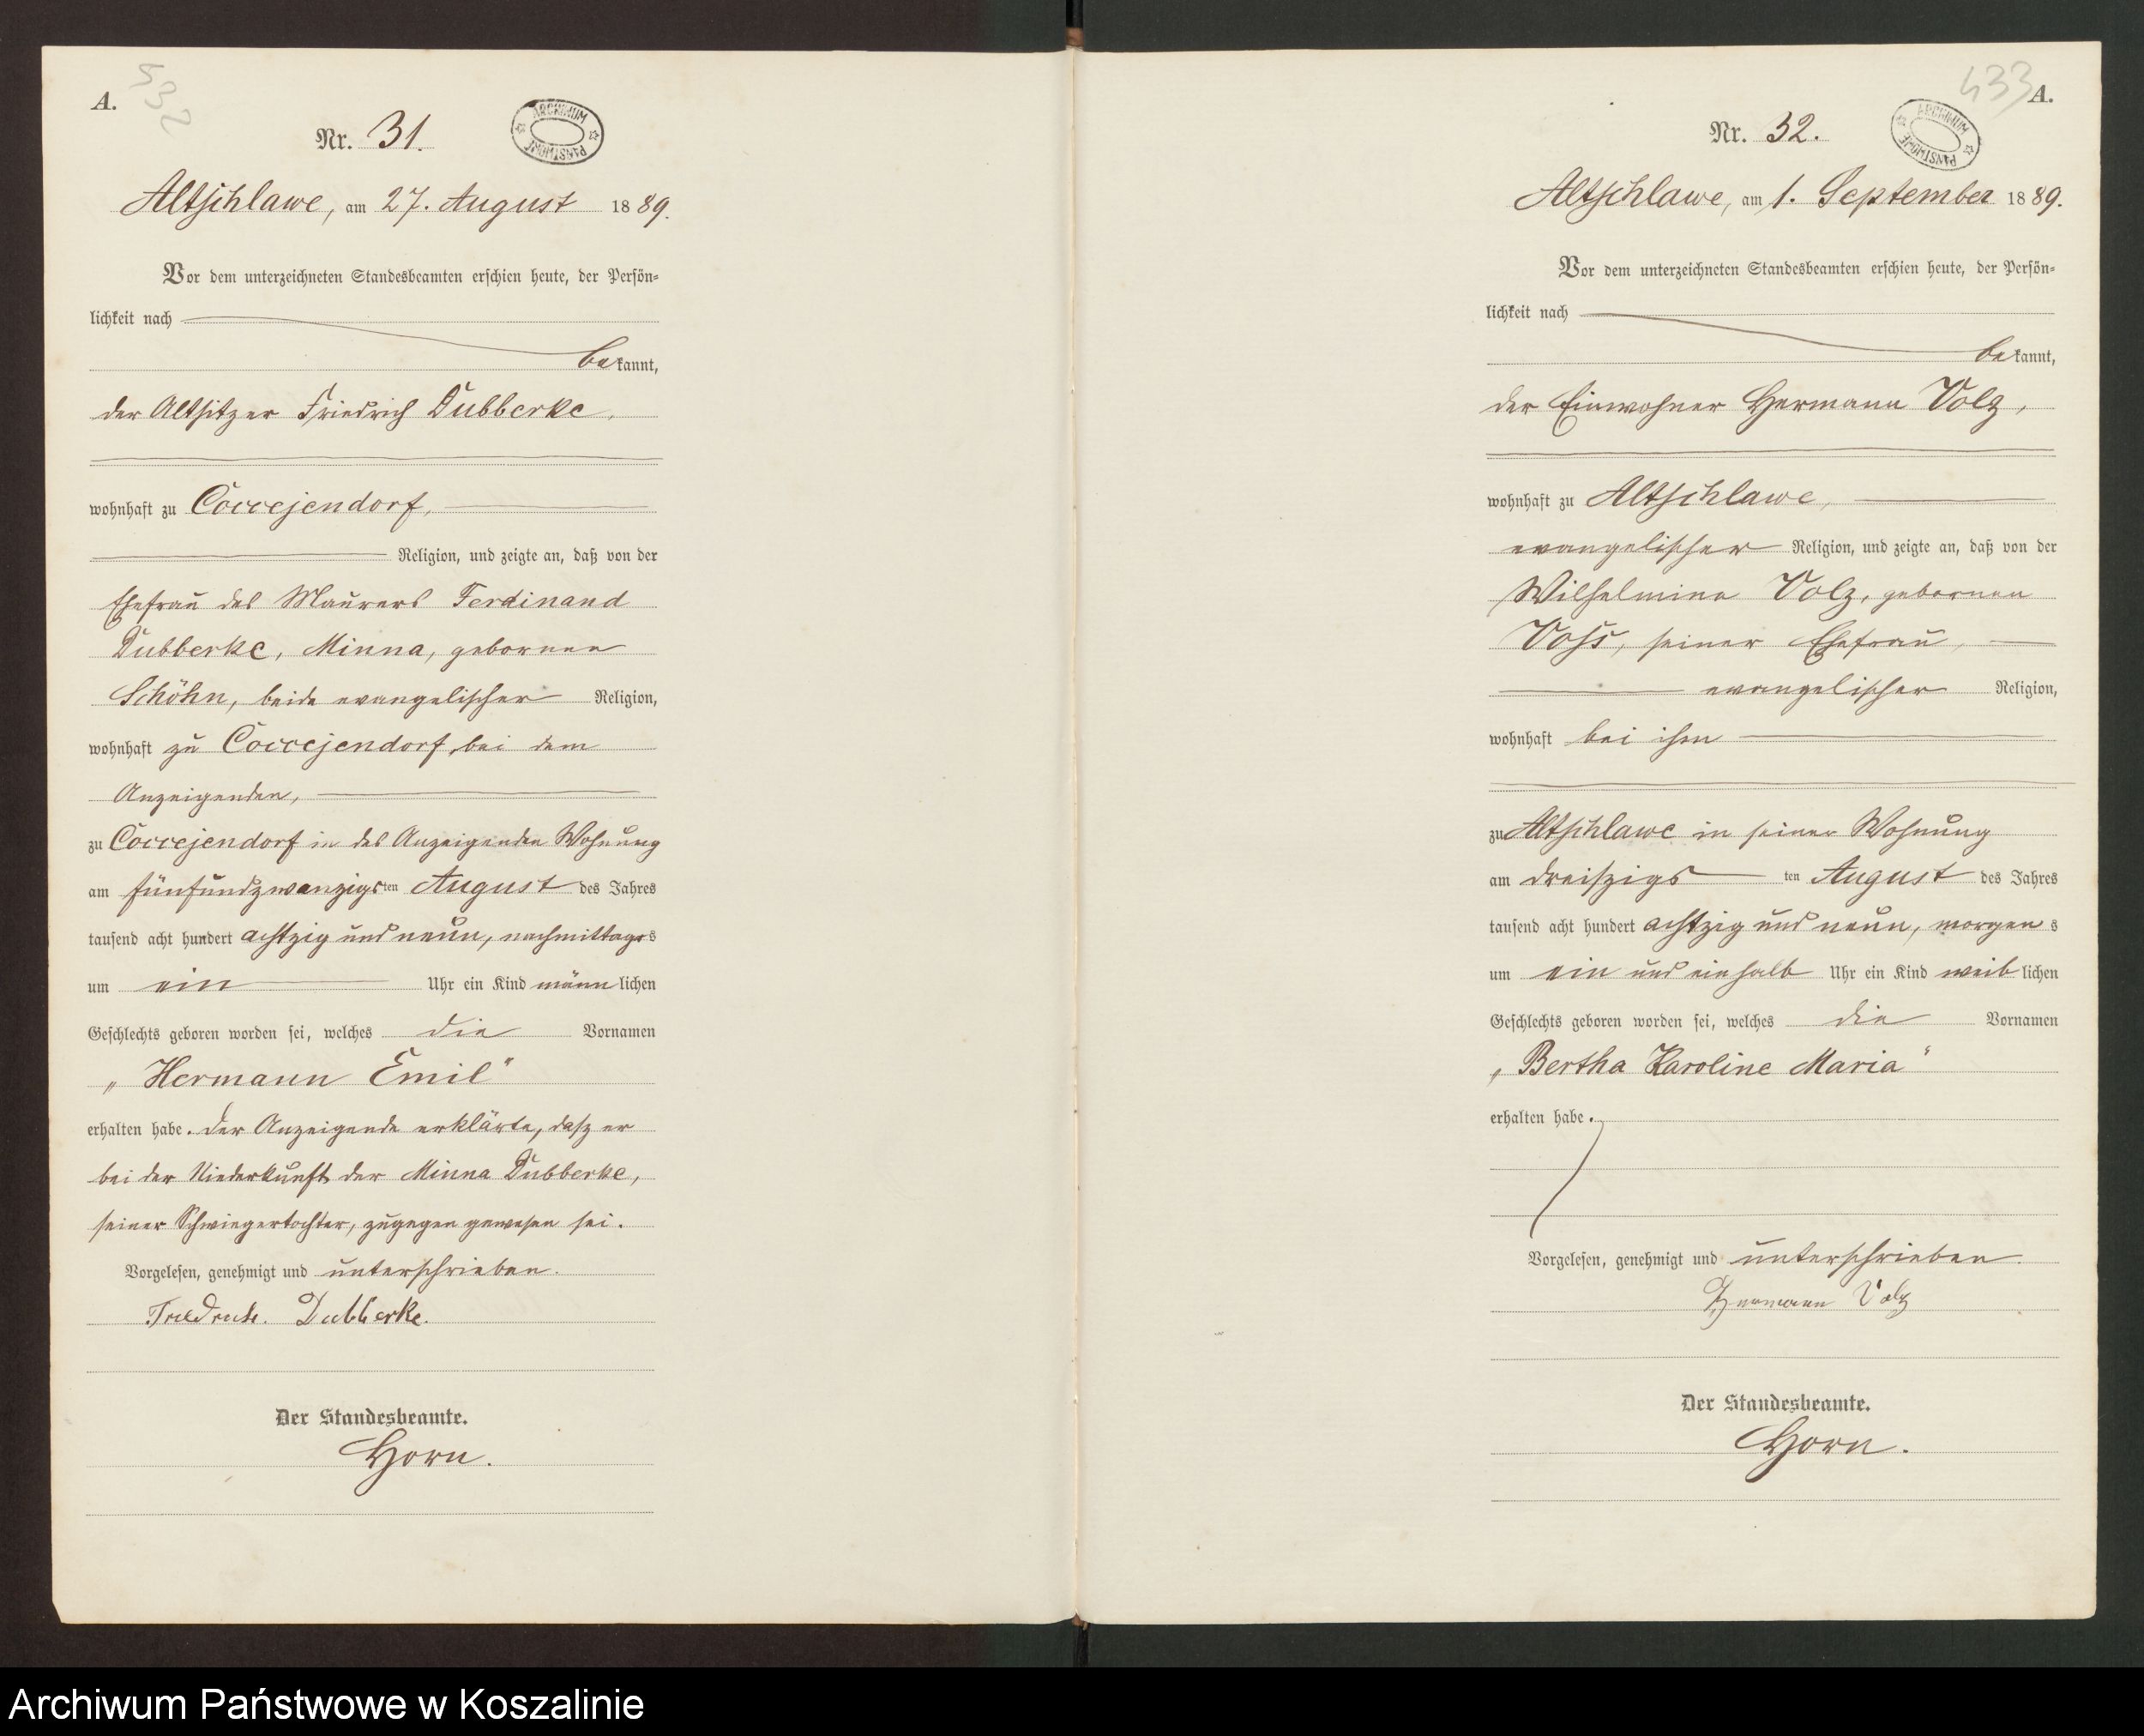 A.
532
Nr. 31.
ARCHIWUM PAŃSTWOWE
Altschlawe, am 27. August 1889.
Vor dem unterzeichneten Standesbeamten erschien heute, der Persön=
lichkeit nach
bekannt,
der Altsitzer Friedrich Dubberke,
wohnhaft zu Coccejendorf,
Religion, und zeigte an, daß von der
Ehefrau des Maurers Ferdinand
Dubberke, Minna, gebornen
Schöhn, beide evangelischer Religion,
wohnhaft zu Coccejendorf, bei dem
Anzeigenden,
zu Coccejendorf in des Anzeigenden Wohnung
am fünfundzwanzigsten August des Jahres
tausend acht hundert achtzig und neun, nachmittags
um ein Uhr ein Kind männlichen
Geschlechts geboren worden sei, welches die Vornamen
„Hermann Emil“
erhalten habe. Der Anzeigende erklärte, daß er
bei der Niederkunft der Minna Dubberke,
seiner Schwiegertochter, zugegen gewesen sei.
Vorgelesen, genehmigt und unterschrieben.
Friedrich Dubberke.
Der Standesbeamte.
Horn.
433
A.
Nr. 32.
ARCHIWUM PAŃSTWOWE
Altschlawe, am 1. September 1889.
Vor dem unterzeichneten Standesbeamten erschien heute, der Persön=
lichkeit nach
bekannt,
der Einwohner Hermann Volz,
wohnhaft zu Altschlawe,
evangelischer Religion, und zeigte an, daß von der
Wilhelmine Volz, gebornen
Voß, seiner Ehefrau,
evangelischer Religion,
wohnhaft bei ihm
zu Altschlawe in seiner Wohnung
am dreißigsten August des Jahres
tausend acht hundert achtzig und neun, morgens
um ein und ein halb Uhr ein Kind weiblichen
Geschlechts geboren worden sei, welches die Vornamen
„Bertha Karoline Maria“
erhalten habe.
Vorgelesen, genehmigt und unterschrieben.
Hermann Volz
Der Standesbeamte.
Horn.
Archiwum Państwowe w Koszalinie